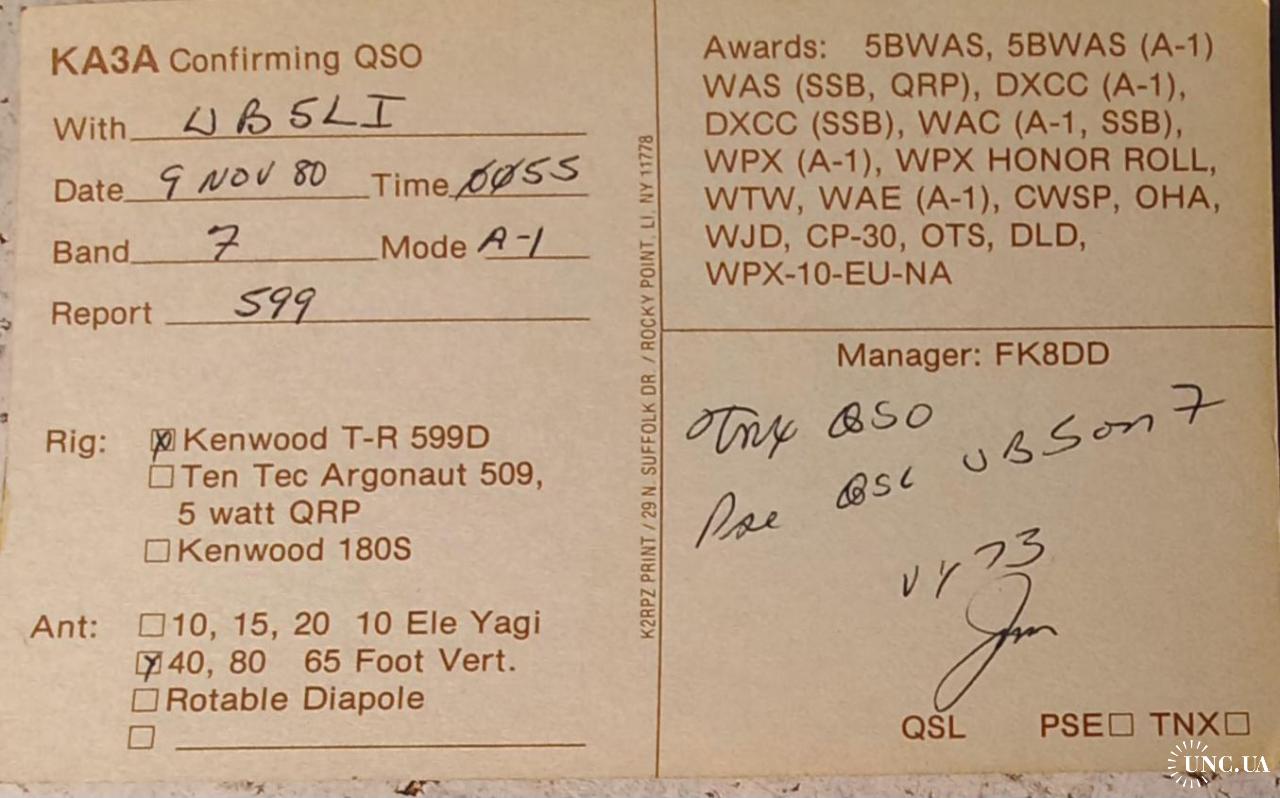 KA3A Confirming QSO
With UB5LI
Date 9 NOV 80 Time 0055
Band 7 Mode A-1
Report 599
Rig: Kenwood T-R 599D
Ten Tec Argonaut 509,
5 watt QRP
Kenwood 180S
Ant: 10, 15, 20 10 Ele Yagi
40, 80 65 Foot Vert.
Rotable Diapole
K2RPZ PRINT / 29 N. SUFFOLK DR. / ROCKY POINT, LI, NY 11778
Awards: 5BWAS, 5BWAS (A-1)
WAS (SSB, QRP), DXCC (A-1),
DXCC (SSB), WAC (A-1, SSB),
WPX (A-1), WPX HONOR ROLL,
WTW, WAE (A-1), CWSP, OHA,
WJD, CP-30, OTS, DLD,
WPX-10-EU-NA
Manager: FK8DD
Tnx QSO
Pse QSL UB5 on 7
VY 73
Jim
QSL PSE TNX
UNC.UA